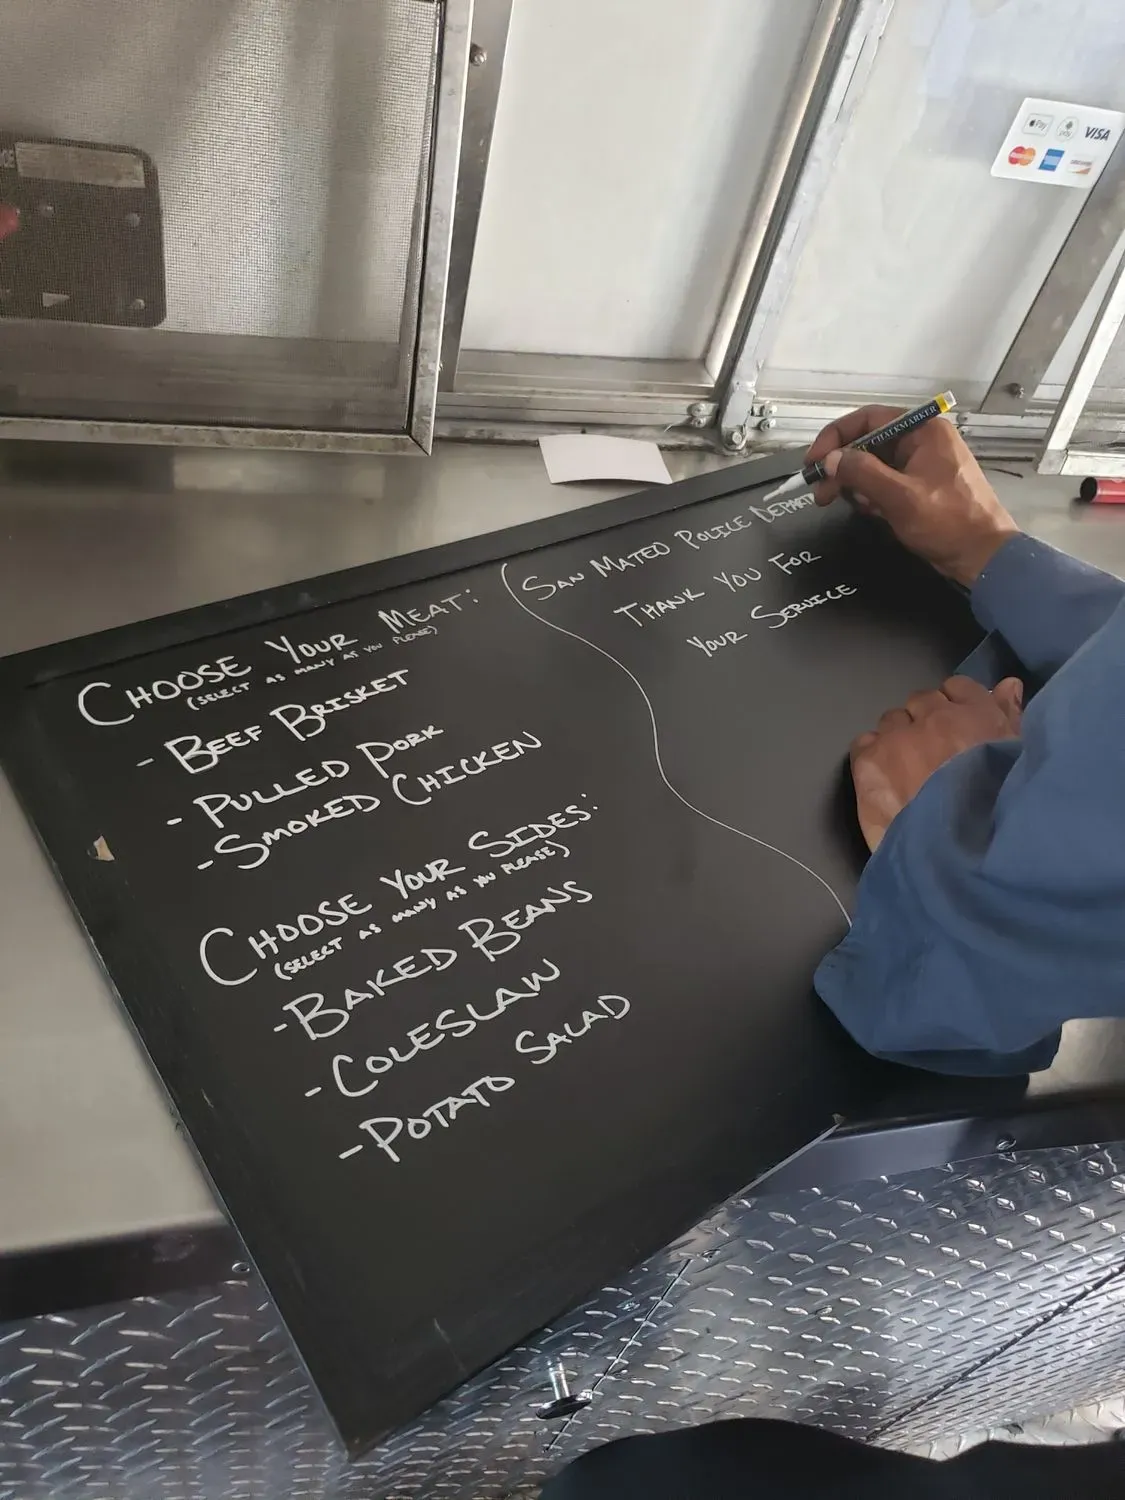 CHOOSE YOUR MEAT:
(SELECT AS MANY AS YOU PLEASE)
- BEEF BRISKET
- PULLED PORK
- SMOKED CHICKEN
CHOOSE YOUR SIDES:
(SELECT AS MANY AS YOU PLEASE)
- BAKED BEANS
- COLESLAW
- POTATO SALAD
SAN MATEO POLICE DEPART
THANK YOU FOR
YOUR SERVICE
CHALKMARKER
Pay
VISA